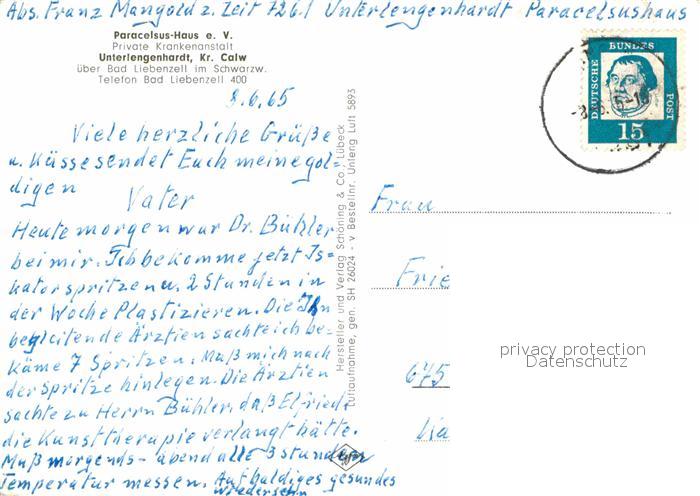 Abs. Franz Mangold z. Zeit 7261 Unterlengenhardt Paracelsushaus
Paracelsus-Haus e. V.
Private Krankenanstalt
Unterlengenhardt, Kr. Calw
über Bad Liebenzell im Schwarzw.
Telefon Bad Liebenzell 400
8.6.65
Viele herzliche Grüße
u. Küsse sendet Euch meine gol=
digen
Vater
Heute morgen war Dr. Bühler
bei mir. Ich bekomme jetzt Is=
kator spritzen u. 2 Stunden in
der Woche Plastizieren. Die Ihn
begleitende Ärztien sachte ich be=
käme 7 Spritzen. Muß mich nach
der Spritze hinlegen. Die Ärztien
sachte zu Herrn Bühler, daß Elfriede
die Kunsttherapie verlangt hätte.
Muß morgends - abend alle 3 Stunden
Temperatur messen. Auf baldiges gesundes
wiedersehn
Hersteller und Verlag Schöning & Co., Lübeck
Luftaufnahme, gen. SH 26024 - v Bestellnr. Unleng Luft 5893
DEUTSCHE
BUNDES
POST
15
Frau
Frie
675
privacy protection
Datenschutz